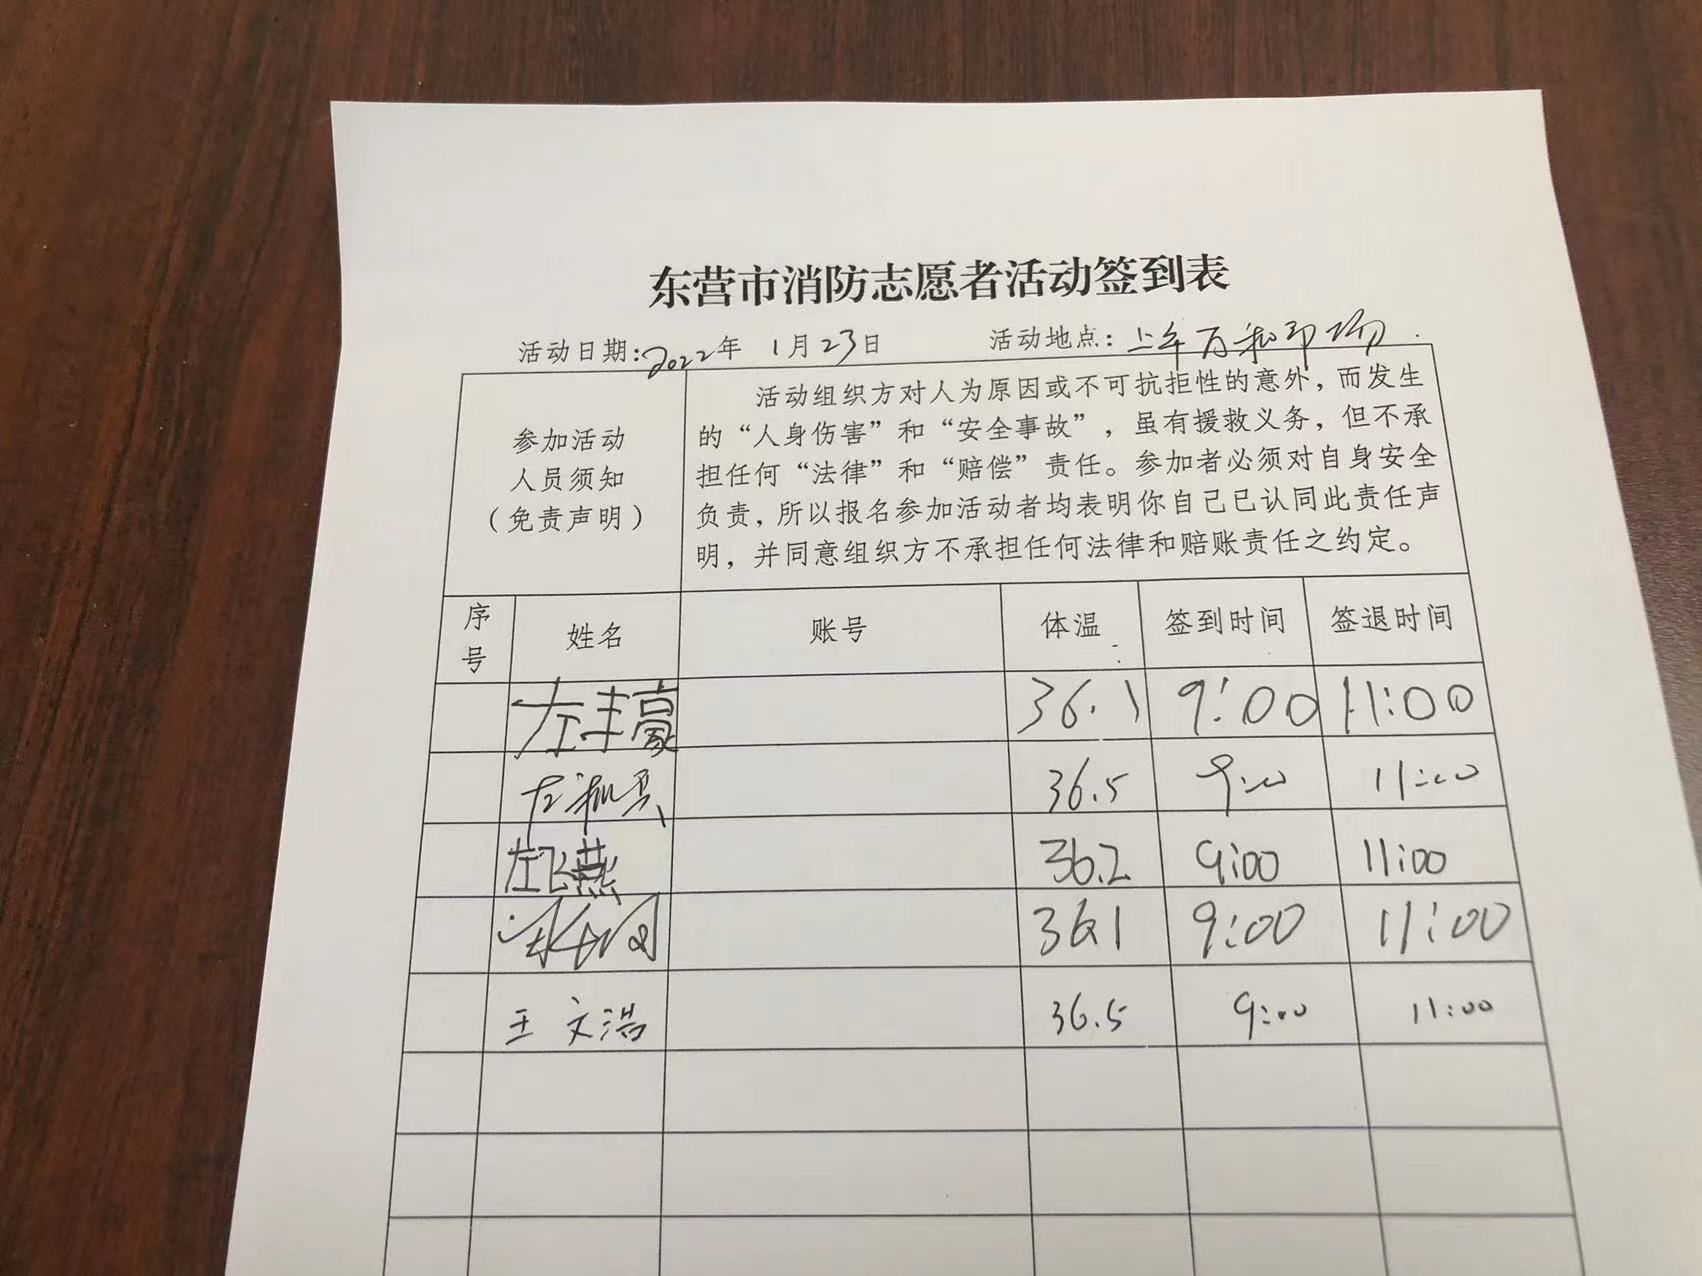 东营市消防志愿者活动签到表
活动日期:2022年 1月23日 活动地点:上年万和
参加活动
人员须知
（免责声明）
活动组织方对人为原因或不可抗拒性的意外，而发生
的“人身伤害”和“安全事故”，虽有援救义务，但不承
担任何“法律”和“赔偿”责任。参加者必须对自身安全
负责，所以报名参加活动者均表明你自己已认同此责任声
明，并同意组织方不承担任何法律和赔账责任之约定。
序号 姓名 账号 体温 签到时间 签退时间
左丰豪 36.1 9:00 11:00
左 36.5 9:00 11:00
左飞燕 36.2 9:00 11:00
36.1 9:00 11:00
王文浩 36.5 9:00 11:00